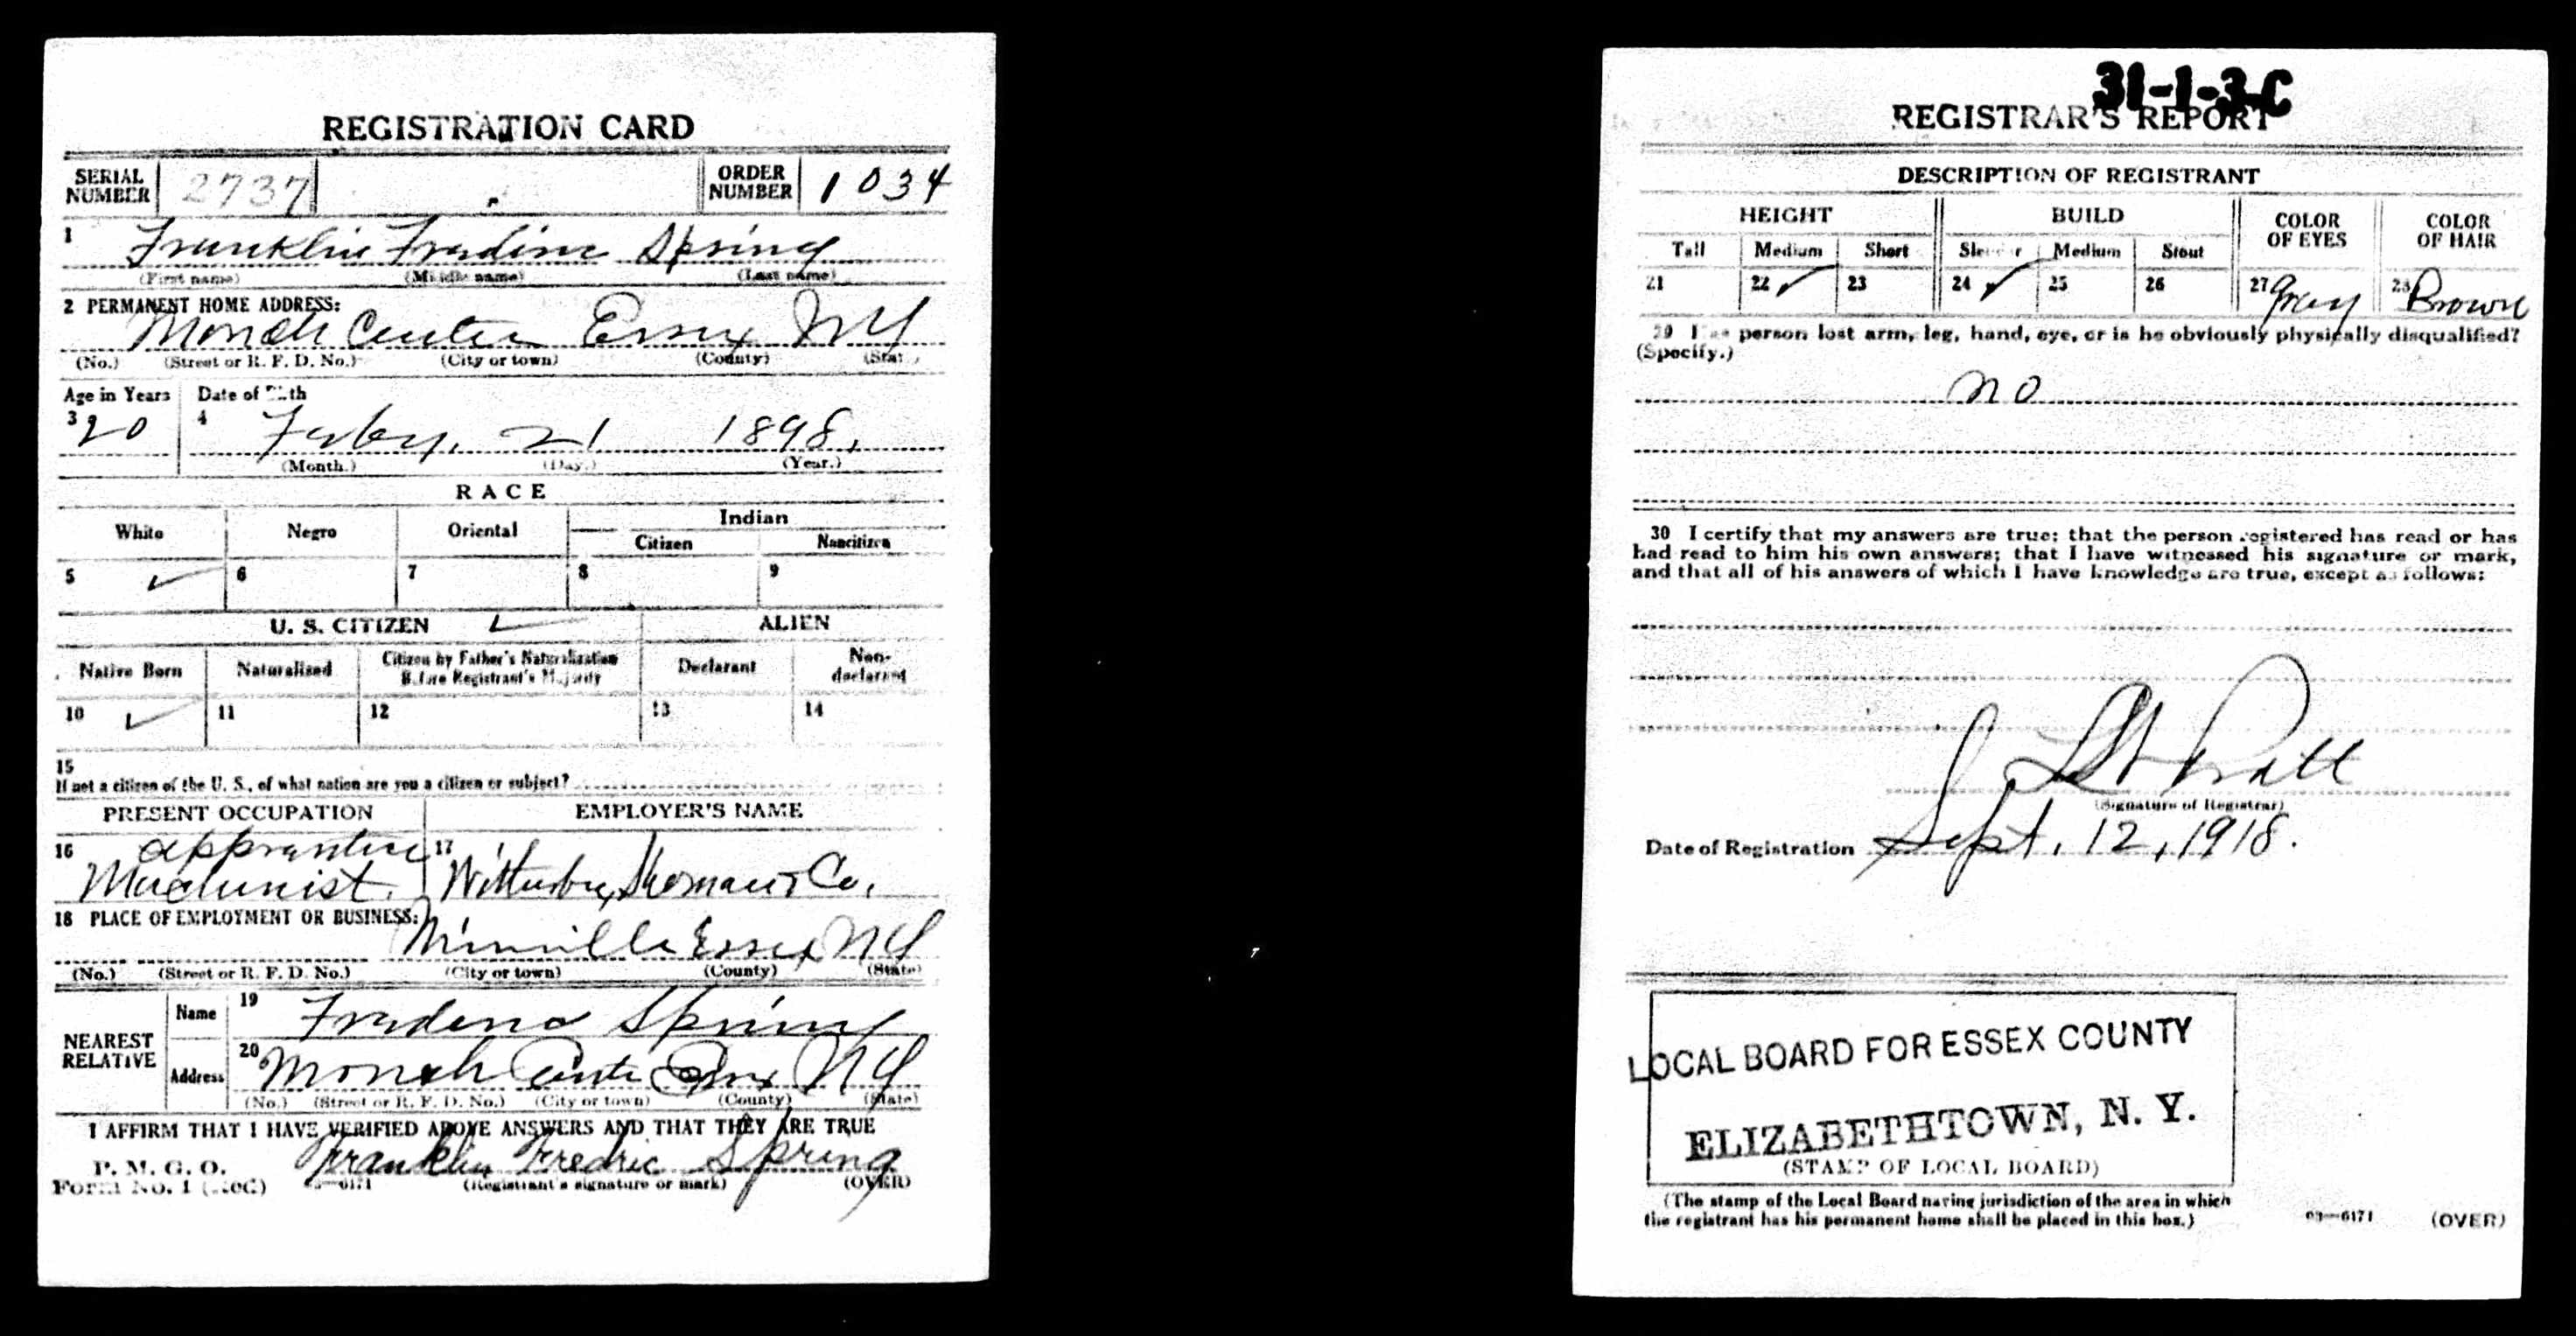 REGISTRATION CARD
SERIAL NUMBER 2737 ORDER NUMBER 1034
1 Franklin Fredric Spring
(First name) (Middle name) (Last name)
2 PERMANENT HOME ADDRESS:
Moriah Center Essex NY
(No.) (Street or R. F. D. No.) (City or town) (County) (State)
Age in Years Date of Birth
3 20 4 Feby. 21 1898.
(Month.) (Day.) (Year.)
RACE
White Negro Oriental Indian
Citizen Noncitizen
5 ✓ 6 7 8 9
U. S. CITIZEN ✓ ALIEN
Native Born Naturalized Citizen by Father's Naturalization Before Registrant's Majority Declarant Non-declarant
10 ✓ 11 12 13 14
15
If not a citizen of the U. S., of what nation are you a citizen or subject?
PRESENT OCCUPATION EMPLOYER'S NAME
16 apprentice 17
Machinist. Witherbee, Sherman & Co.
18 PLACE OF EMPLOYMENT OR BUSINESS:
Mineville Essex NY
(No.) (Street or R. F. D. No.) (City or town) (County) (State)
NEAREST RELATIVE
Name 19 Spring
Address 20 Moriah Center Essex NY
(No.) (Street or R. F. D. No.) (City or town) (County) (State)
I AFFIRM THAT I HAVE VERIFIED ABOVE ANSWERS AND THAT THEY ARE TRUE
P. M. G. O.
Form No. 1 (Red) 03—6171 Franklin Fredric Spring
(Registrant's signature or mark) (OVER)
31-1-3-C
REGISTRAR'S REPORT
DESCRIPTION OF REGISTRANT
HEIGHT BUILD COLOR OF EYES COLOR OF HAIR
Tall Medium Short Slender Medium Stout
21 22 ✓ 23 24 ✓ 25 26 27 Gray 28 Brown
29 Has person lost arm, leg, hand, eye, or is he obviously physically disqualified?
(Specify.)
no
30 I certify that my answers are true; that the person registered has read or has
had read to him his own answers; that I have witnessed his signature or mark,
and that all of his answers of which I have knowledge are true, except as follows:
Pratt
(Signature of Registrar)
Date of Registration Sept. 12, 1918.
LOCAL BOARD FOR ESSEX COUNTY
ELIZABETHTOWN, N. Y.
(STAMP OF LOCAL BOARD)
(The stamp of the Local Board having jurisdiction of the area in which
the registrant has his permanent home shall be placed in this box.)
03—6171 (OVER)